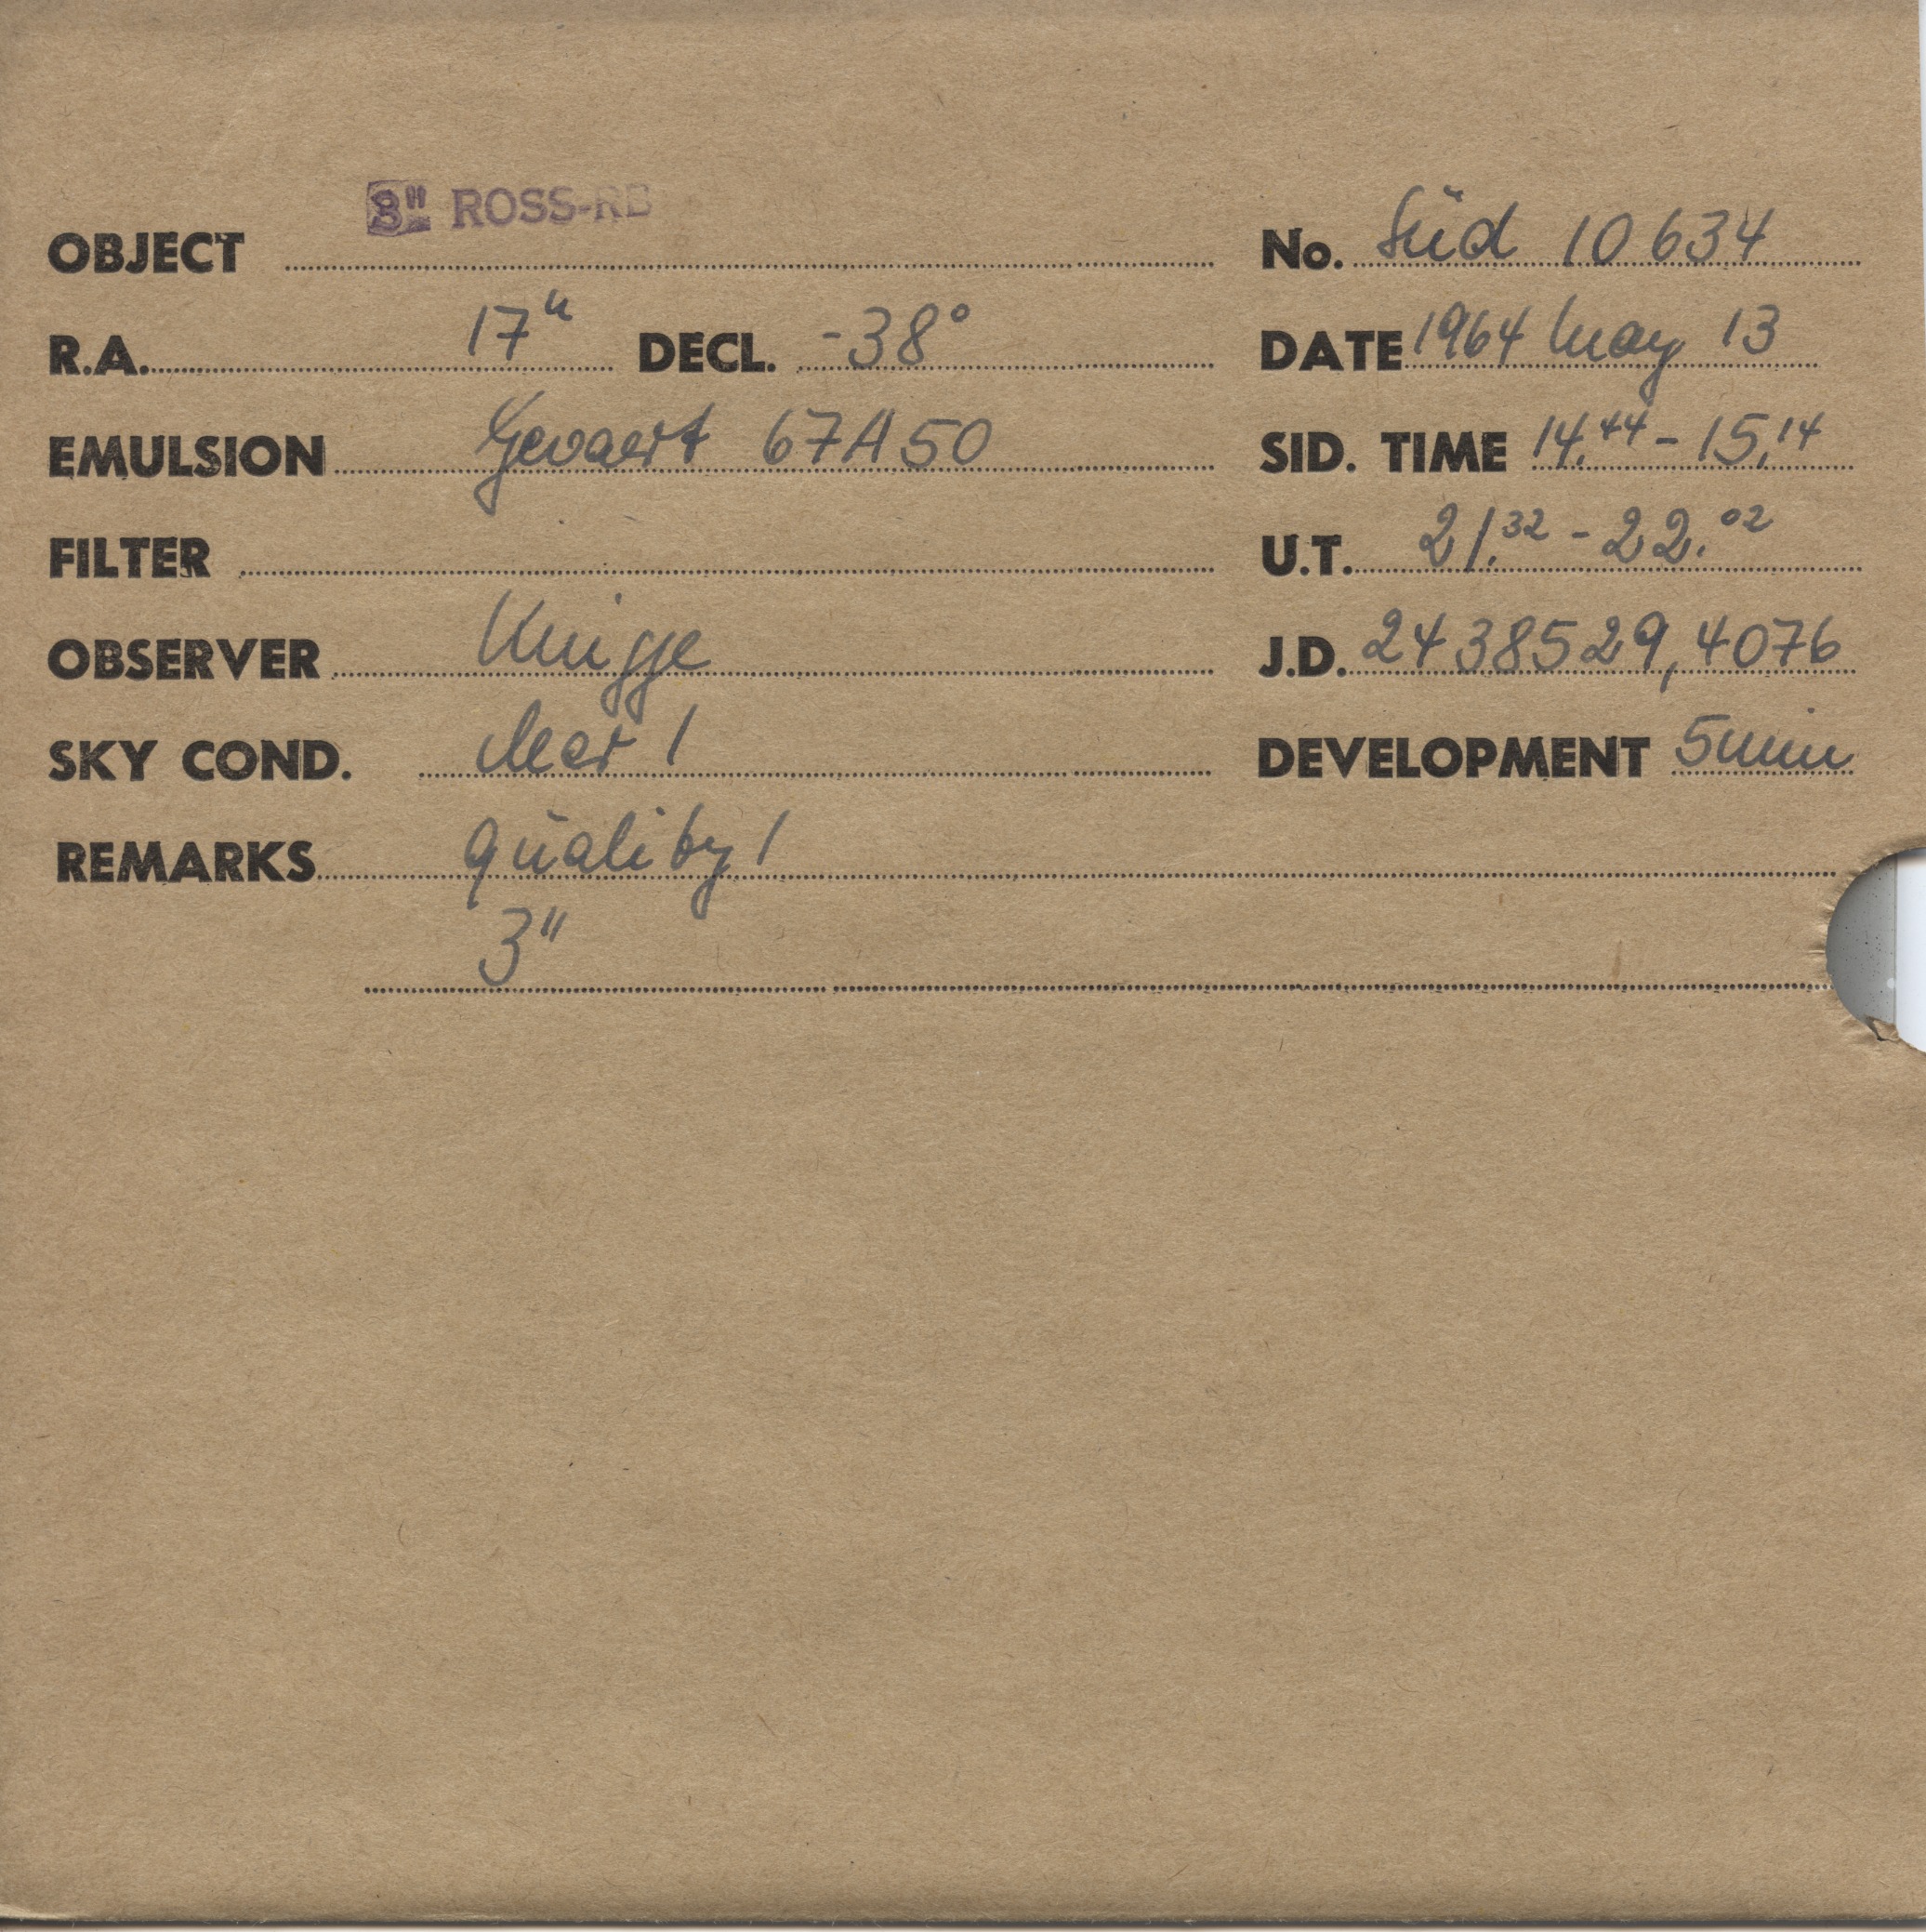 3" ROSS-RB
OBJECT No. Süd 10634
R.A. 17h DECL. -38° DATE 1964 May 13
EMULSION Gevaert 67A50 SID. TIME 14.44 - 15.14
FILTER U.T. 21.32 - 22.02
OBSERVER Knigge J.D. 2438529,4076
SKY COND. clear 1 DEVELOPMENT 5min
REMARKS quality 1
3"